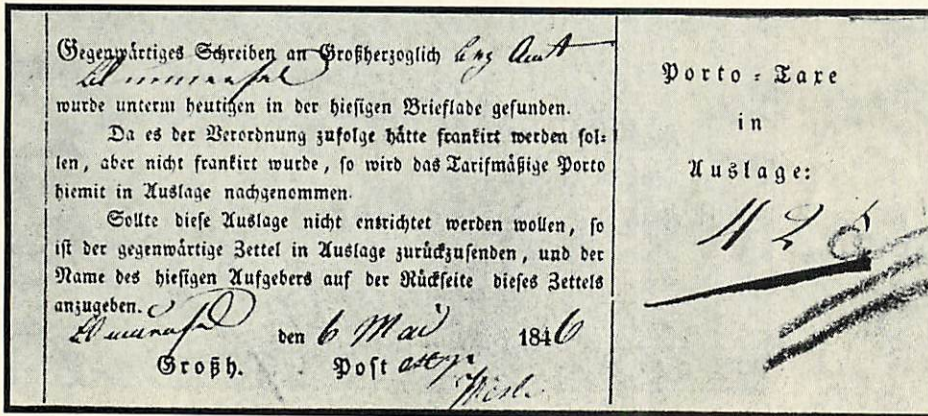 Gegenwärtiges Schreiben an Großherzoglich Bez Amt
wurde unterm heutigen in der hiesigen Brieflade gefunden.
Da es der Verordnung zufolge hätte frankirt werden sol-
len, aber nicht frankirt wurde, so wird das Tarifmäßige Porto
hiemit in Auslage nachgenommen.
Sollte diese Auslage nicht entrichtet werden wollen, so
ist der gegenwärtige Zettel in Auslage zurückzusenden, und der
Name des hiesigen Aufgebers auf der Rückseite dieses Zettels
anzugeben.
den 6 Mai 1846
Großh. Post
Porto-Taxe
in
Auslage: